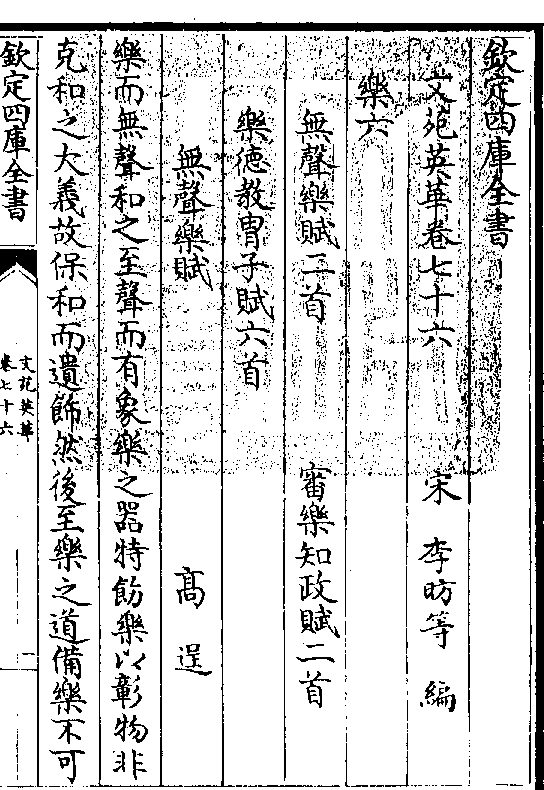 欽定四庫全書
文苑英華卷七十六　宋　李昉等　編
樂六
無聲樂賦三首　審樂知政賦二首
樂德教胄子賦六首
無聲樂賦　高　逞
樂而無聲和之至聲而有象樂之器特飭樂以彰物非
克和之大義故保和而遺飾然後至樂之道備樂不可
欽定四庫全書
文苑英華
卷七十六
一